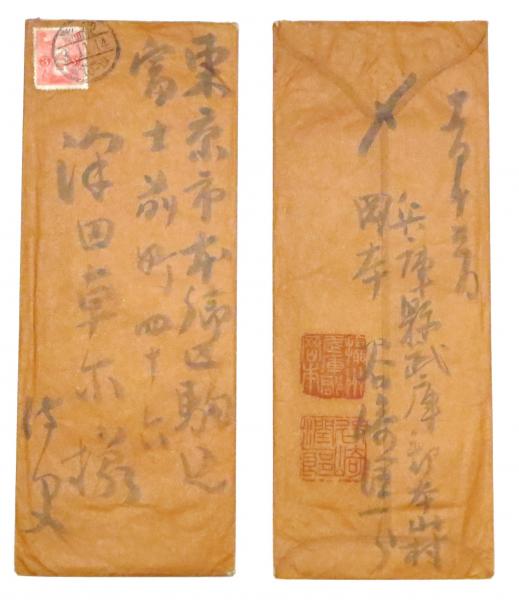 東京市本郷区駒込
富士前町四十六
澤田卓尓様
侍史
兵庫縣武庫郡本山村
岡本 谷崎潤一郎
摂州
武庫郡
岡本
谷崎
潤一郎